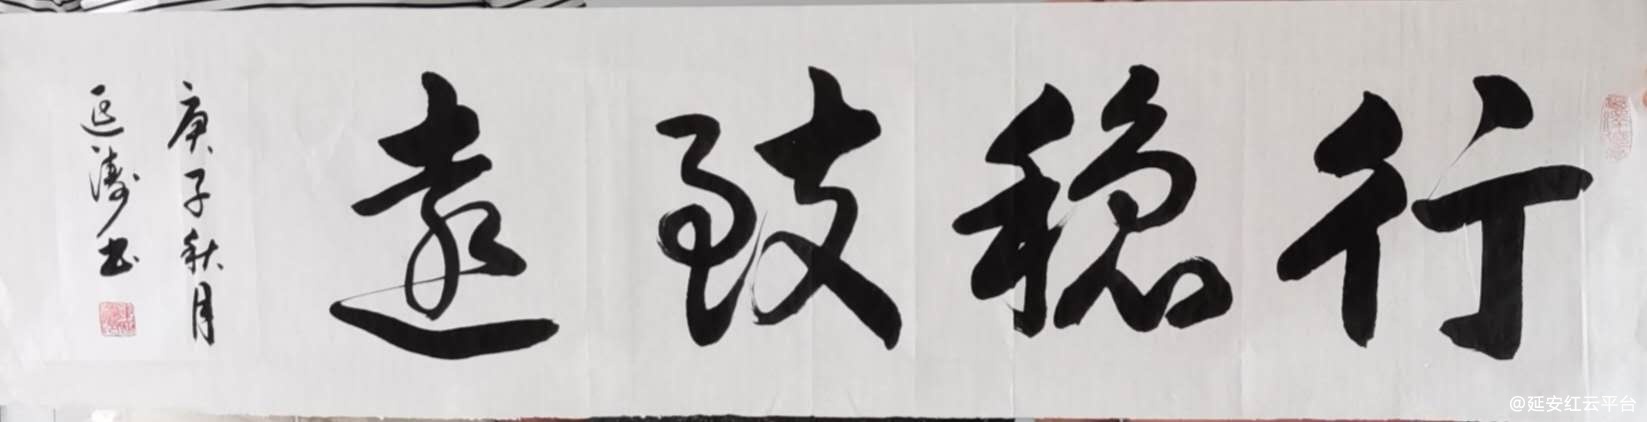 行穩致遠
庚子秋月
延濤书
@延安红云平台